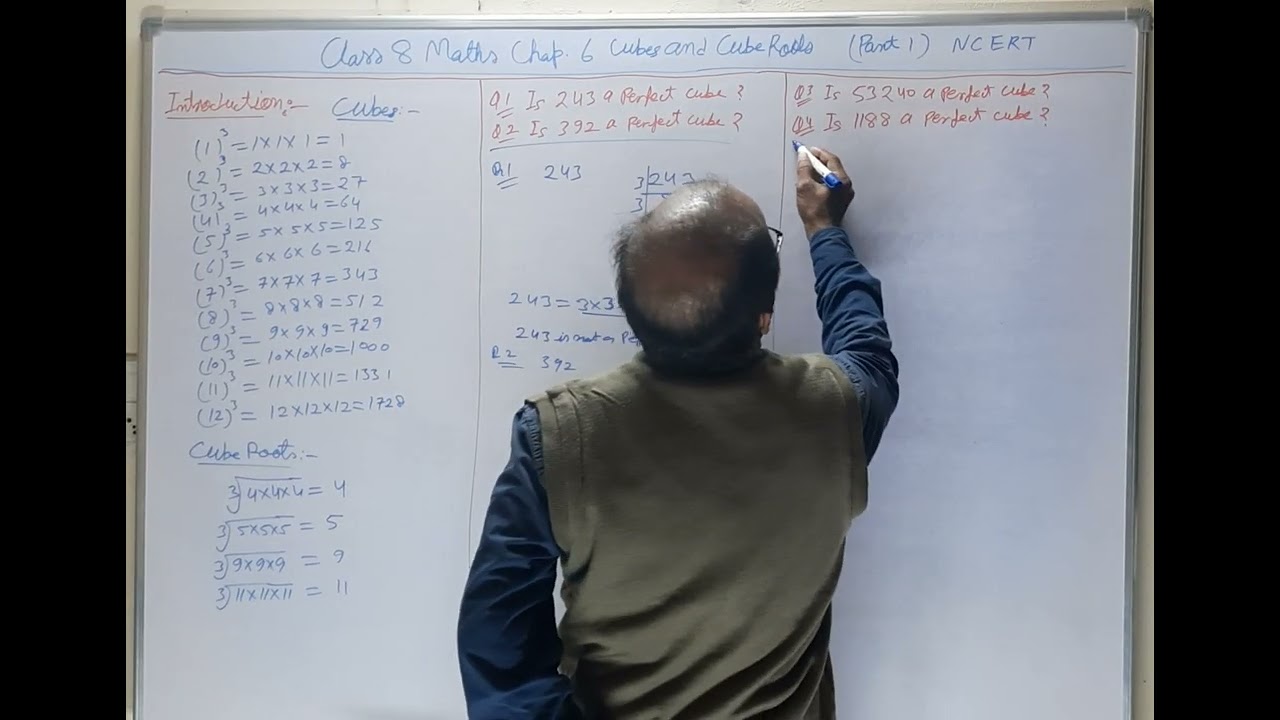 Class 8 Maths Chap. 6 Cubes and Cube Roots (Part 1) NCERT
Introduction:- Cubes:-
(1)³ = 1×1×1 = 1
(2)³ = 2×2×2 = 8
(3)³ = 3×3×3 = 27
(4)³ = 4×4×4 = 64
(5)³ = 5×5×5 = 125
(6)³ = 6×6×6 = 216
(7)³ = 7×7×7 = 343
(8)³ = 8×8×8 = 512
(9)³ = 9×9×9 = 729
(10)³ = 10×10×10 = 1000
(11)³ = 11×11×11 = 1331
(12)³ = 12×12×12 = 1728
Cube Roots:-
3√4×4×4 = 4
3√5×5×5 = 5
3√9×9×9 = 9
3√11×11×11 = 11
Q1 Is 243 a Perfect cube?
Q2 Is 392 a Perfect cube?
Q1 243
3 243
3
243 = 3×3
243 is not a
Q2 392
Q3 Is 53240 a Perfect cube?
Q4 Is 1188 a Perfect cube?